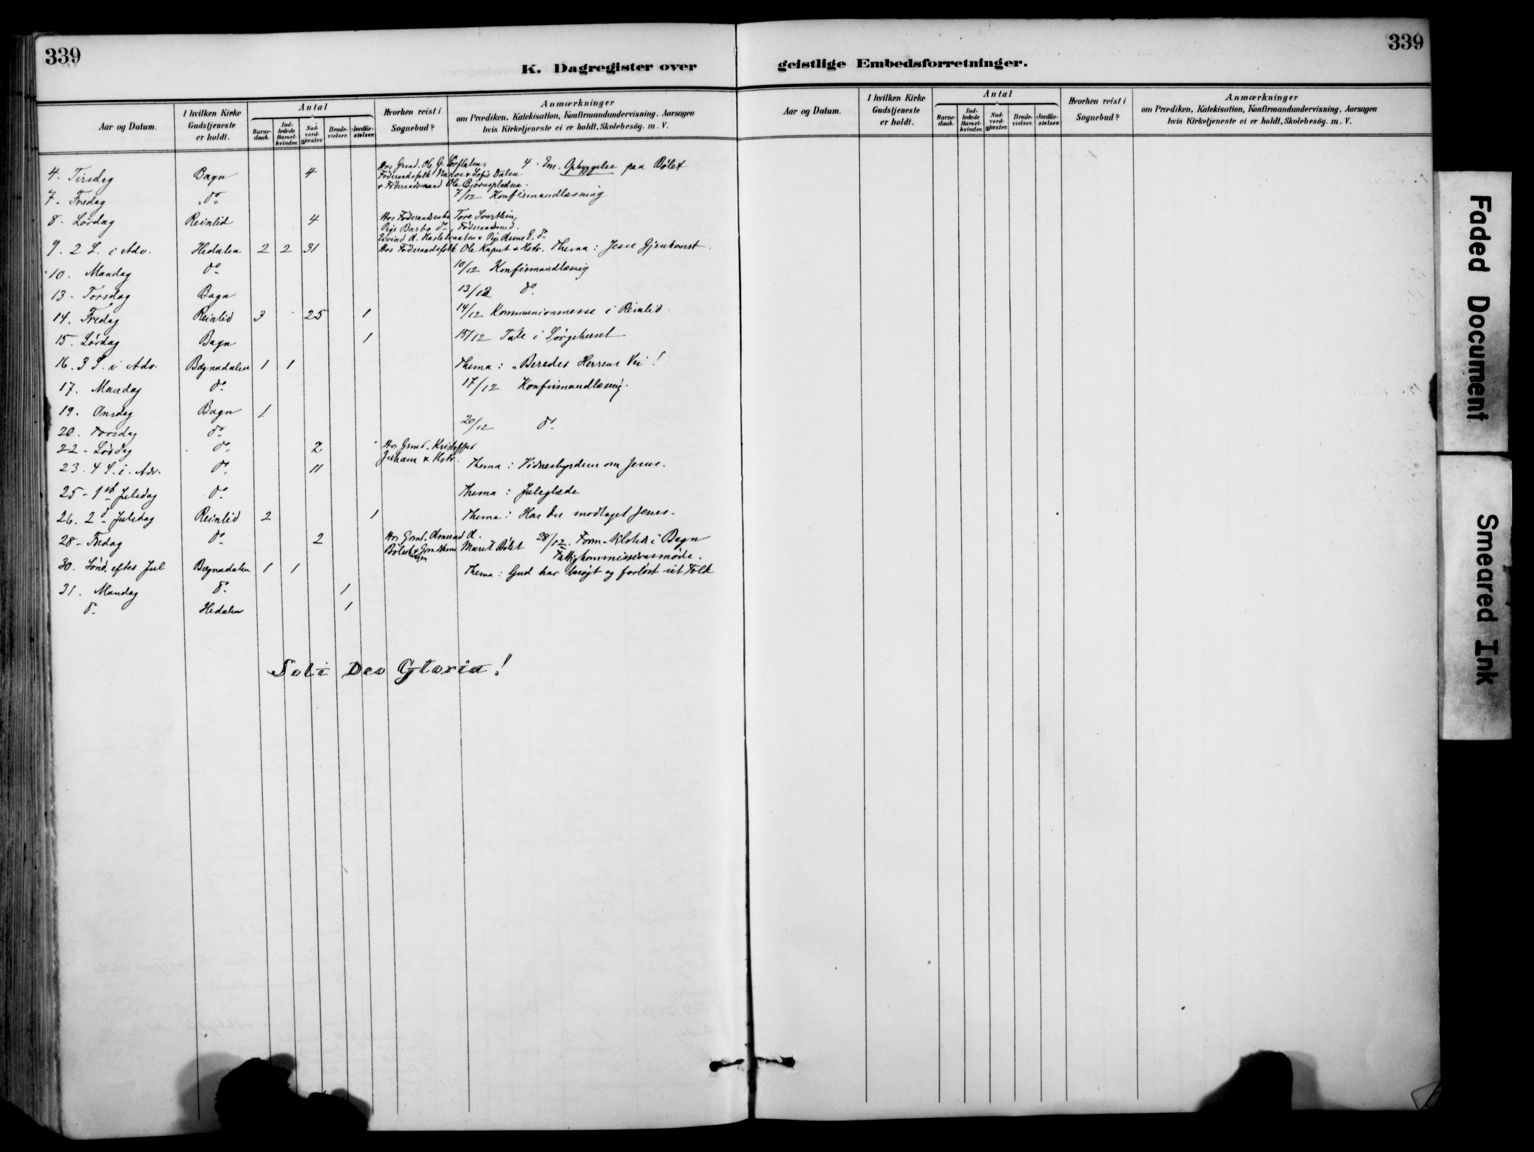 339
K. Dagregister over geistlige Embedsforretninger.
339
Aar og Datum. I hvilken Kirke Gudstjeneste er holdt. Antal Barnedaab. Indledede Barselkvinder. Nadverdgjæster. Brudevielser. Jordfæstelser. Hvorhen reist i Sognebud? Anmærkninger om Prædiken, Katekisation, Konfirmandundervisning, Aarsagen hvis Kirketjeneste ei er holdt, Skolebesøg. m. V.
Aar og Datum. I hvilken Kirke Gudstjeneste er holdt. Antal Barnedaab. Indledede Barselkvinder. Nadverdgjæster. Brudevielser. Jordfæstelser. Hvorhen reist i Sognebud? Anmærkninger om Prædiken, Katekisation, Konfirmandundervisning, Aarsagen hvis Kirketjeneste ei er holdt, Skolebesøg. m. V.
4. Tirsdag Bagn 4 Hos Grmd. Ole G. 4. Em. Opbyggelse paa Bølet
7. Fredag do 7/12 Konfirmandlæsning
8. Lørdag Reinlid 4
9. 2 S. i Adv. Hedalen 2 2 31 Thema: Jesu Gjenkomst.
10. Mandag do 10/12 Konfirmandlæsning
13. Torsdag Bagn 13/12 do.
14. Fredag Reinlid 3 25 1 14/12 Kommunionmesse i Reinlid
15. Lørdag Bagn 1 15/12 Tale i Sørgehuset
16. 3 S. i Adv. Begnadalen 1 1 Thema: "Beredes Herrens Vei!
17. Mandag do 17/12 Konfirmandlæsning.
19. Onsdag Bagn 1
20. Torsdag do 20/12 do
22. Lørdag do 2 Hos Grmd. Kristoffer
23. 4 S. i Adv. do 11 Thema: Vidnesbyrdene om Jesus.
25. 1ste Juledag do Thema: Juleglæde
26. 2d Juledag Reinlid 2 1 Thema: Har du modtaget Jesus.
28. Fredag do 2 Marit Bølet 28/12. Form. i Bagn
Fattigkommissionsmøde.
30. Sønd. efter Jul Begnadalen 1 1 Thema: Gud har besøgt og forløst sit Folk
31. Mandag do 1
do Hedalen 1
Soli Deo Gloria!
Faded Document
Smeared Ink